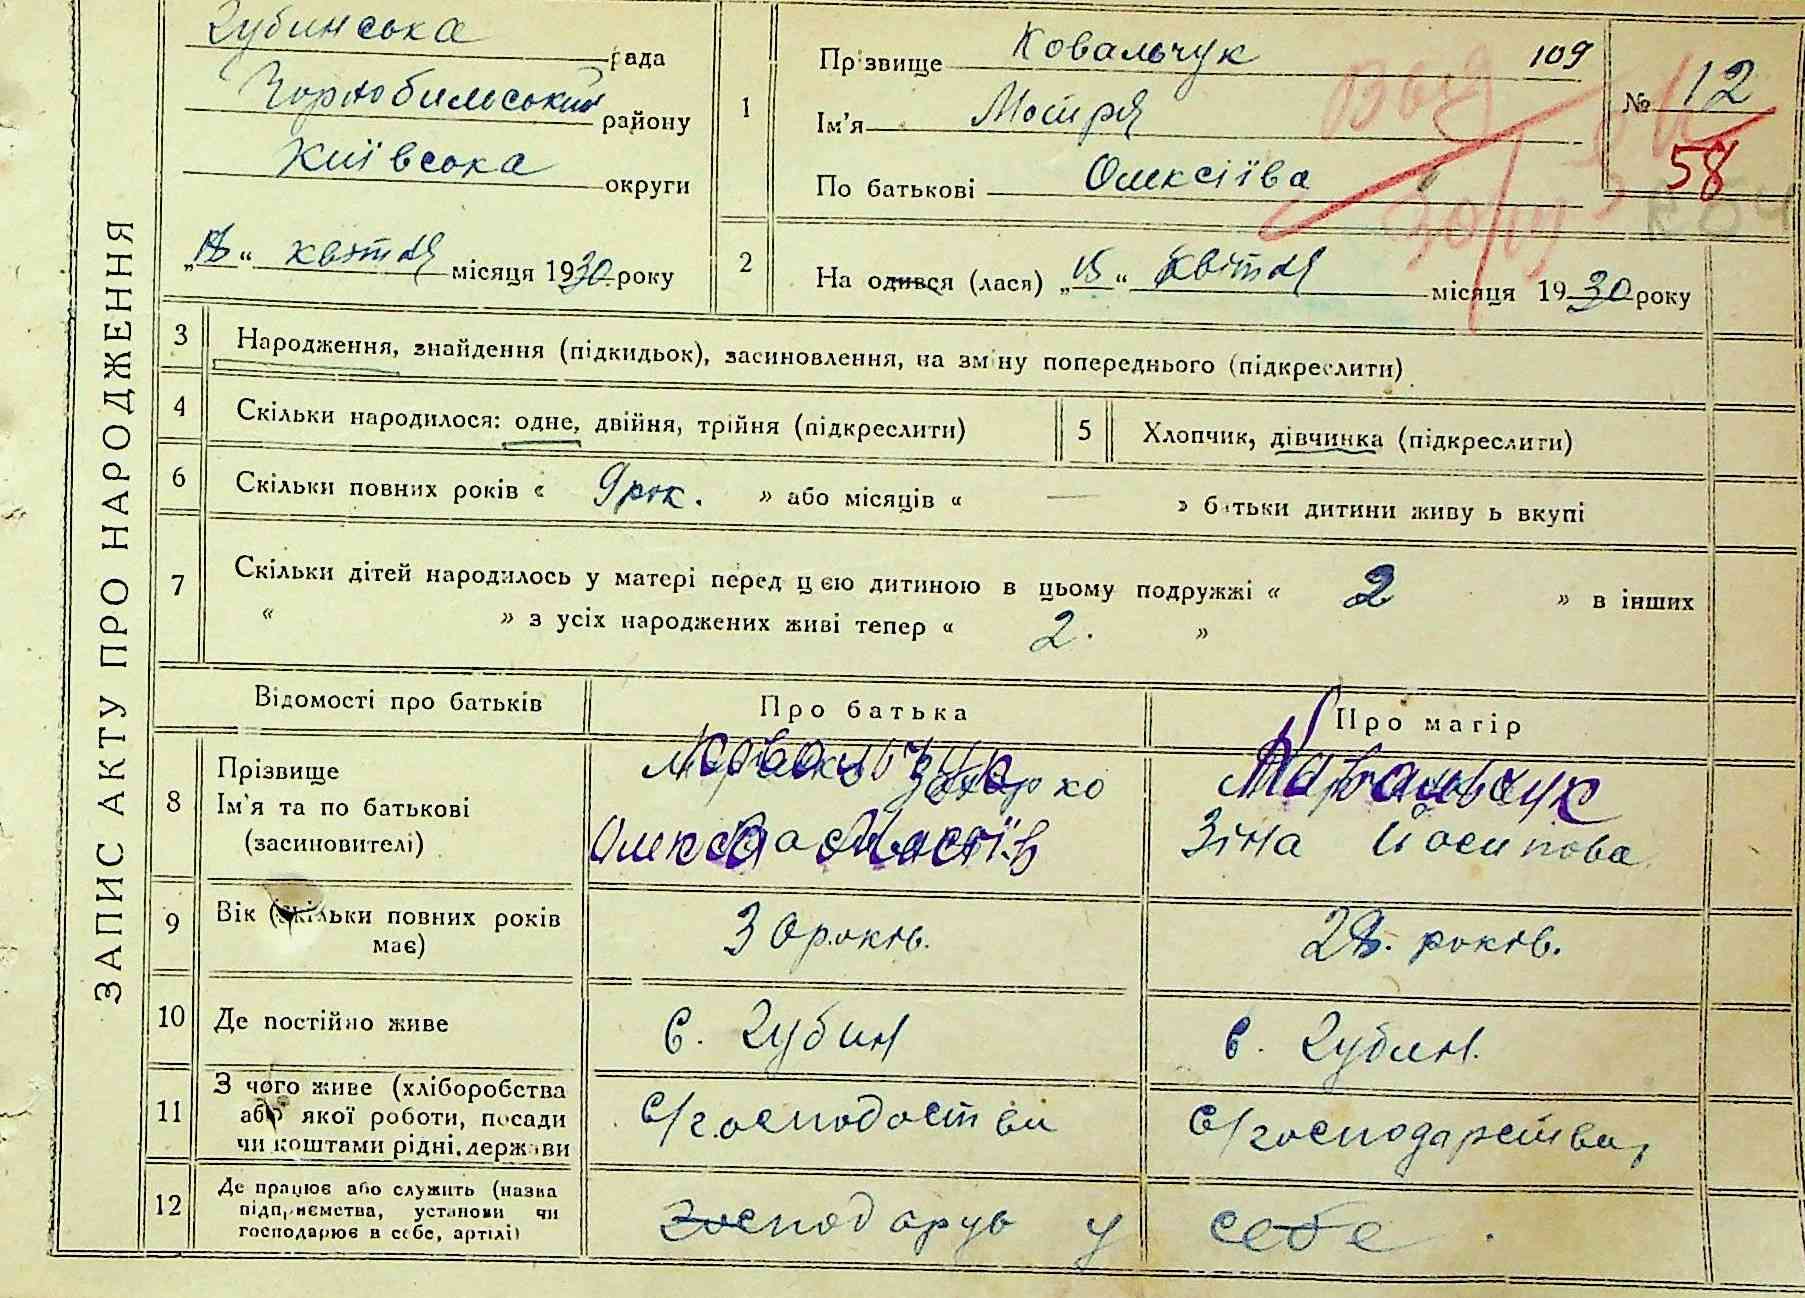 ЗАПИС АКТУ ПРО НАРОДЖЕННЯ
Зубинська рада
Чорнобильський району
Київська округи
„18“ квітня місяця 1930 року
1
Прізвище Ковальчук 109
Ім'я Мотря
По батькові Олексіїва
№ 12
58
2
На одився (лася) „15“ квітня місяця 1930 року
3 Народження, знайдення (підкидьок), засиновлення, на зміну попереднього (підкреслити)
4 Скільки народилося: одне, двійня, трійня (підкреслити)
5 Хлопчик, дівчинка (підкреслити)
6 Скільки повних років « 9 рок. » або місяців « — » батьки дитини живу ь вкупі
7 Скільки дітей народилось у матері перед цією дитиною в цьому подружжі « 2 » в інших
« » з усіх народжених живі тепер « 2. »
Відомості про батьків
Про батька
Про матір
8 Прізвище
Ім'я та по батькові
(засиновителі)
Ковальчук
Олекса
Ковальчук
Зіна Йосипова
9 Вік (скільки повних років
має)
30 років.
28. років.
10 Де постійно живе
с. Зубин
с. Зубин.
11 З чого живе (хліборобства
або якої роботи, посади
чи коштами рідні, держави
с/господоства
с/господарства,
12 Де працює або служить (назва
підприємства, установи чи
господарює в себе, артілі)
господарує у себе.